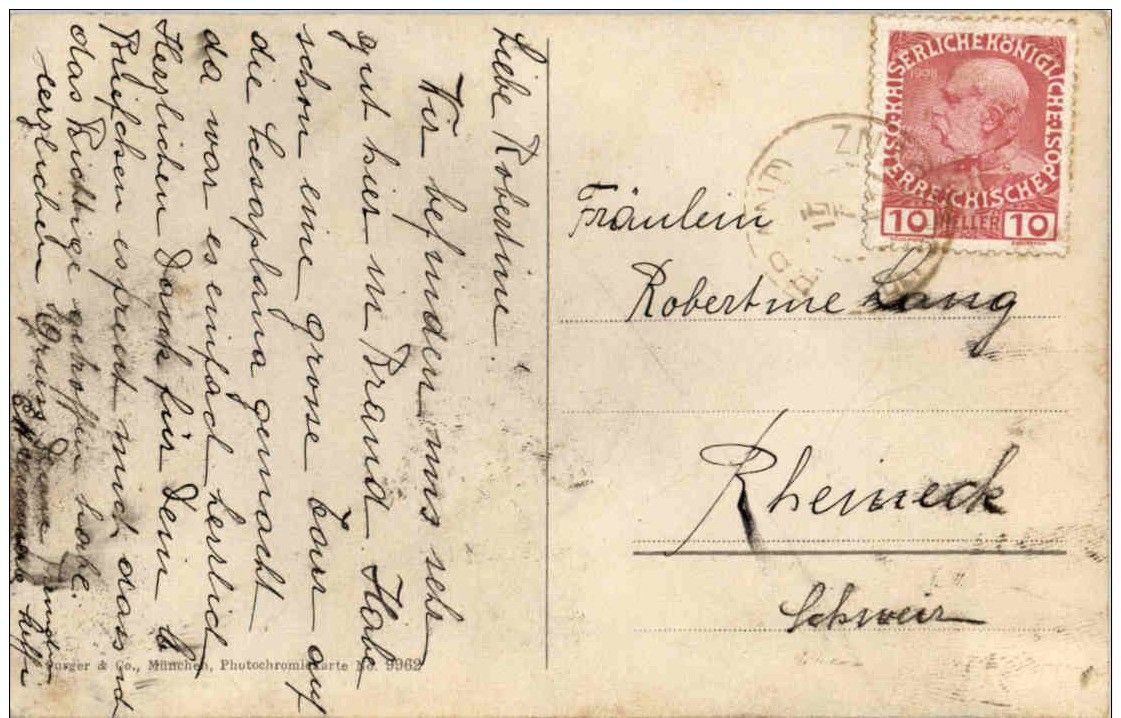 Liebe Robertine.
Wir befinden uns sehr
gut hier in Brand. Habe
schon eine grosse Tour auf
die gemacht
da war es einfach herrlich
Herzlichen Dank für Dein
Briefchen es freut mich dass
das Richtige getroffen habe.
herzlichen Gruss
Purger & Co., München, Photochromiekarte No. 9962
KAISERLICHE KÖNIGLICHE ÖSTERREICHISCHE POST
1908
10 HELLER 10
Fräulein
Robertine Lang
Rheineck
Schweiz